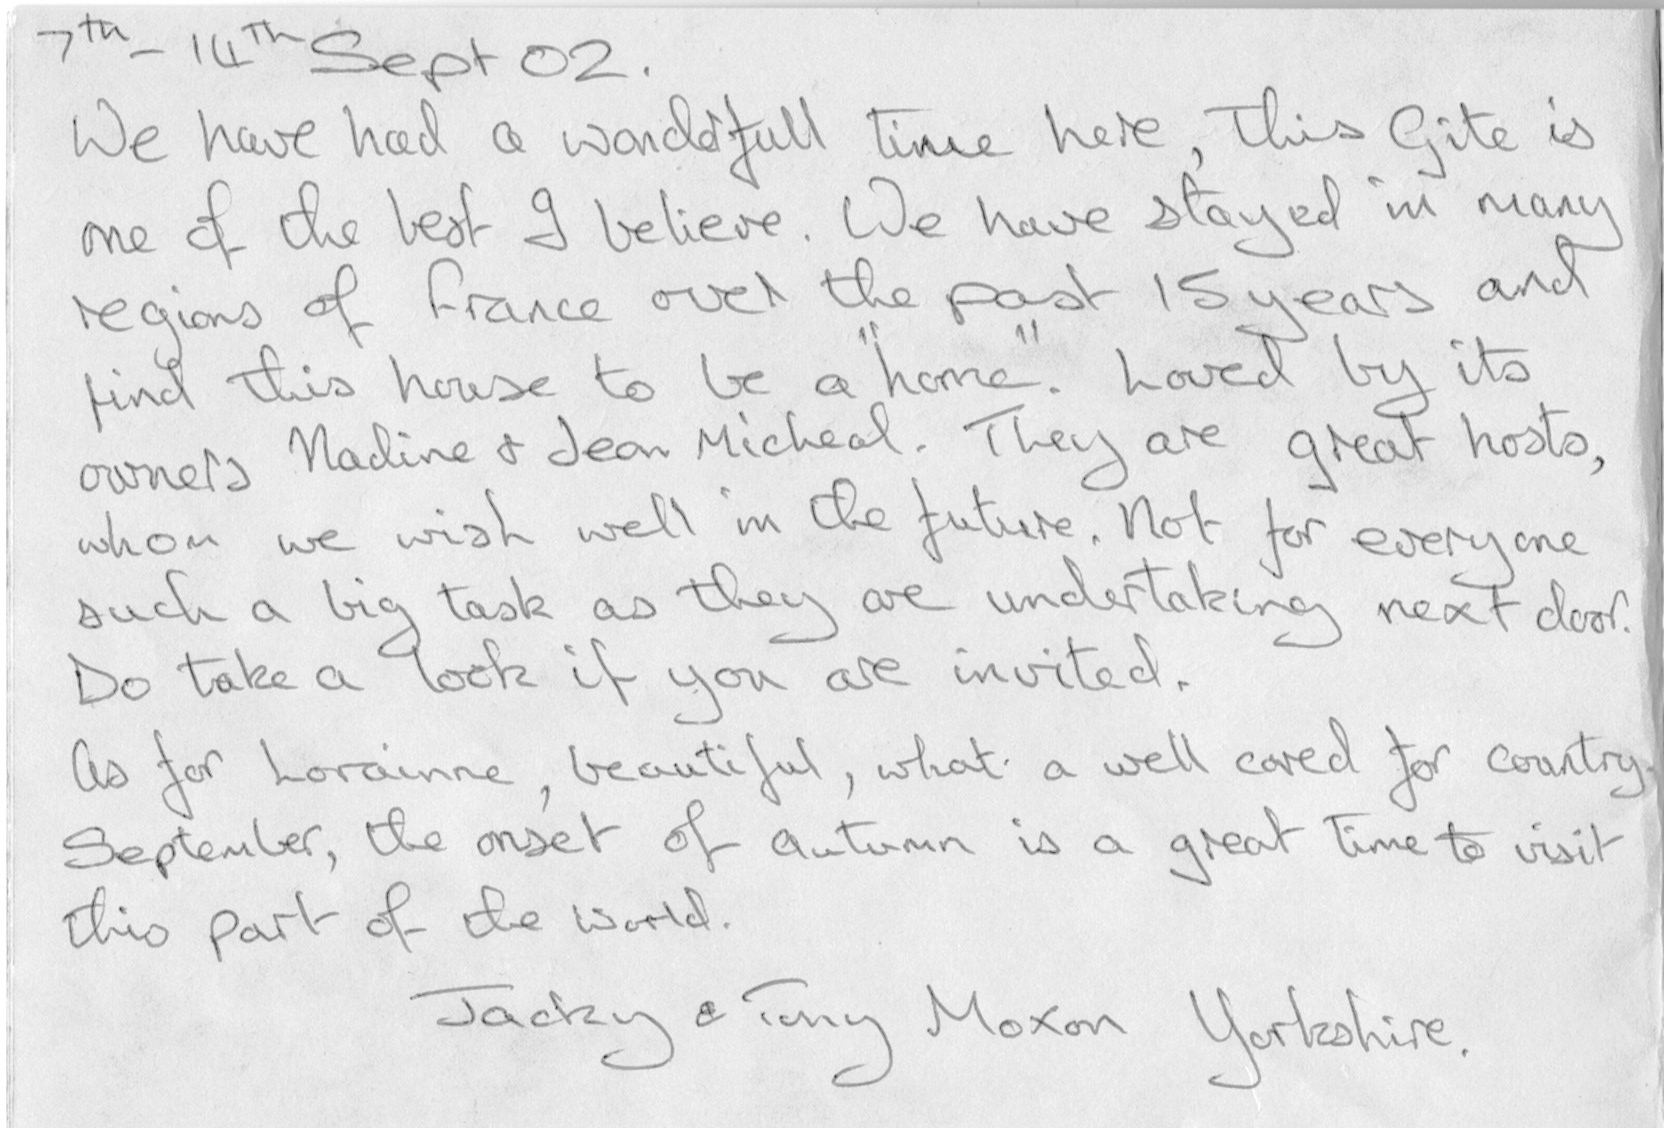 7th - 14th Sept 02.
We have had a wonderfull time here, this Gite is
one of the best I believe. We have stayed in many
regions of France over the past 15 years and
find this house to be a "home". Loved by its
owners Nadine & Jean Micheal. They are great hosts,
whom we wish well in the future. Not for everyone
such a big task as they are undertaking next door.
Do take a look if you are invited.
As for Lorainne, beautiful, what a well cared for country.
September, the onset of autumn is a great time to visit
this part of the world.
Jacky & Tony Moxon Yorkshire.